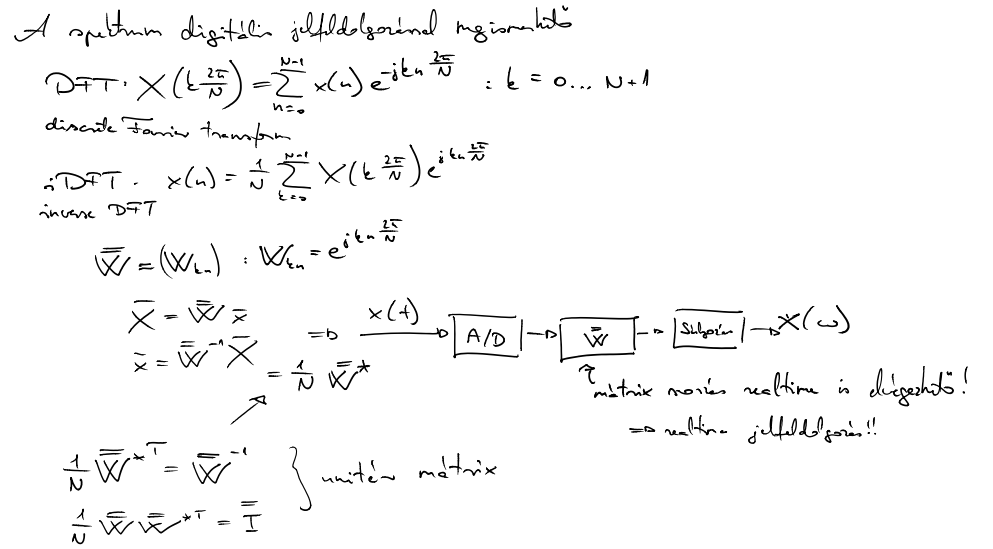 A spektrum digitális jelfeldolgozással megismerhető
DFT: X(k 2π/N) = Σ_{n=0}^{N-1} x(n) e^{-jkn 2π/N} : k = 0... N+1
discrete Fourier transform
iDFT: x(n) = 1/N Σ_{k=0}^{N-1} X(k 2π/N) e^{jkn 2π/N}
inverse DFT
W̿ = (W_{kn}) : W_{kn} = e^{jkn 2π/N}
X̄ = W̿ x̄
x̄ = W̿^{-1} X̄
= 1/N W̿*
⇒ x(t) A/D W̿ X(ω)
mátrix szorzás realtime is elvégezhető!
⇒ realtime jelfeldolgozás!!
1/N W̿*^T = W̿^{-1}
1/N W̿ W̿*^T = I̿
} unitér mátrix